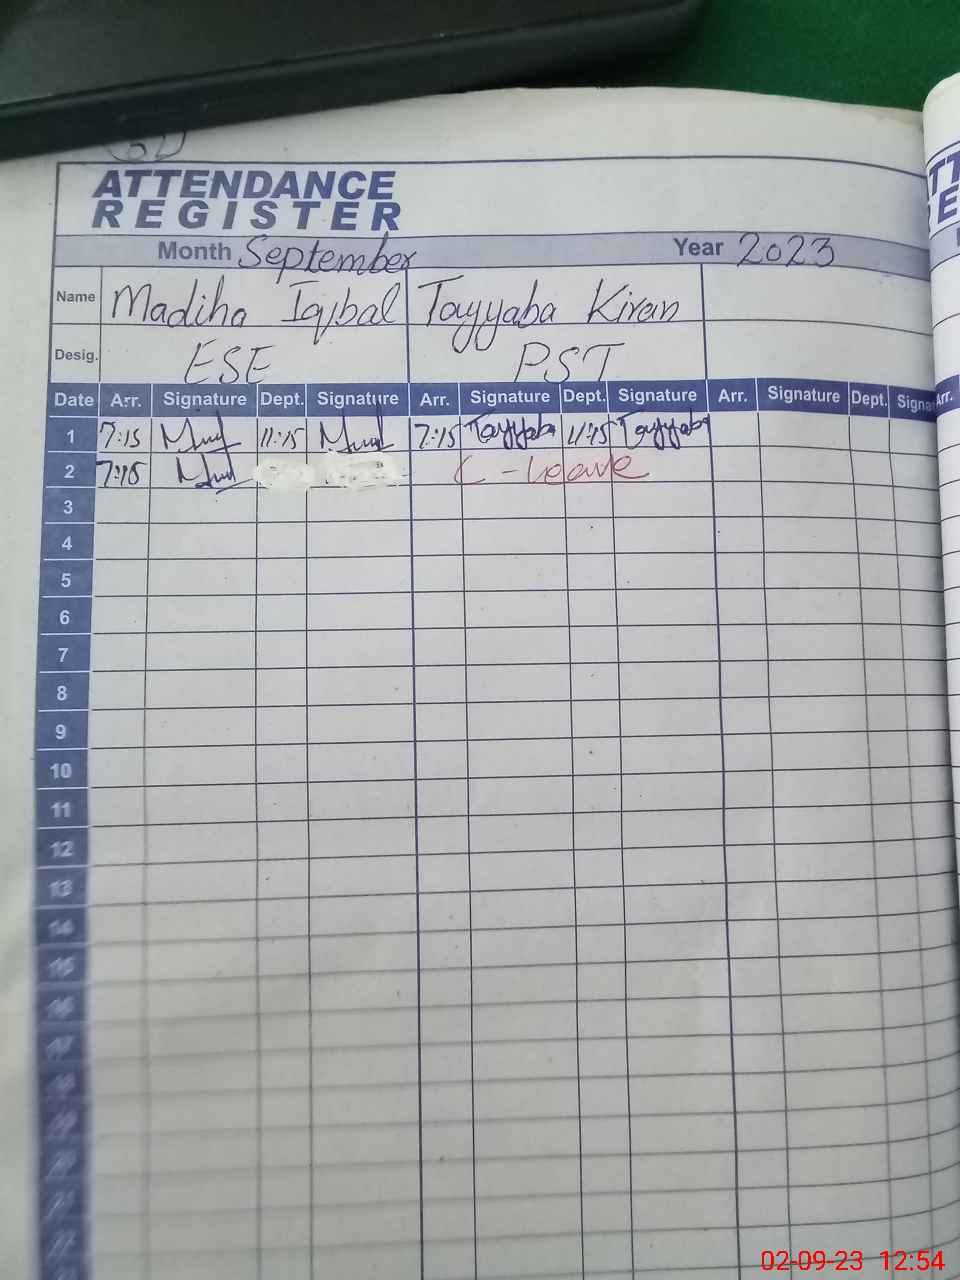 ATTENDANCE
REGISTER
Month September Year 2023
Name Madiha Iqbal Tayyaba Kiran
Desig. ESE PST
Date Arr. Signature Dept. Signature Arr. Signature Dept. Signature Arr. Signature Dept. Signa Arr.
1 7:15 11:15 7:15 Tayyaba 11:15 Tayyaba
2 7:15 C-Leave
3
4
5
6
7
8
9
10
11
12
13
14
15
16
17
02-09-23 12:54